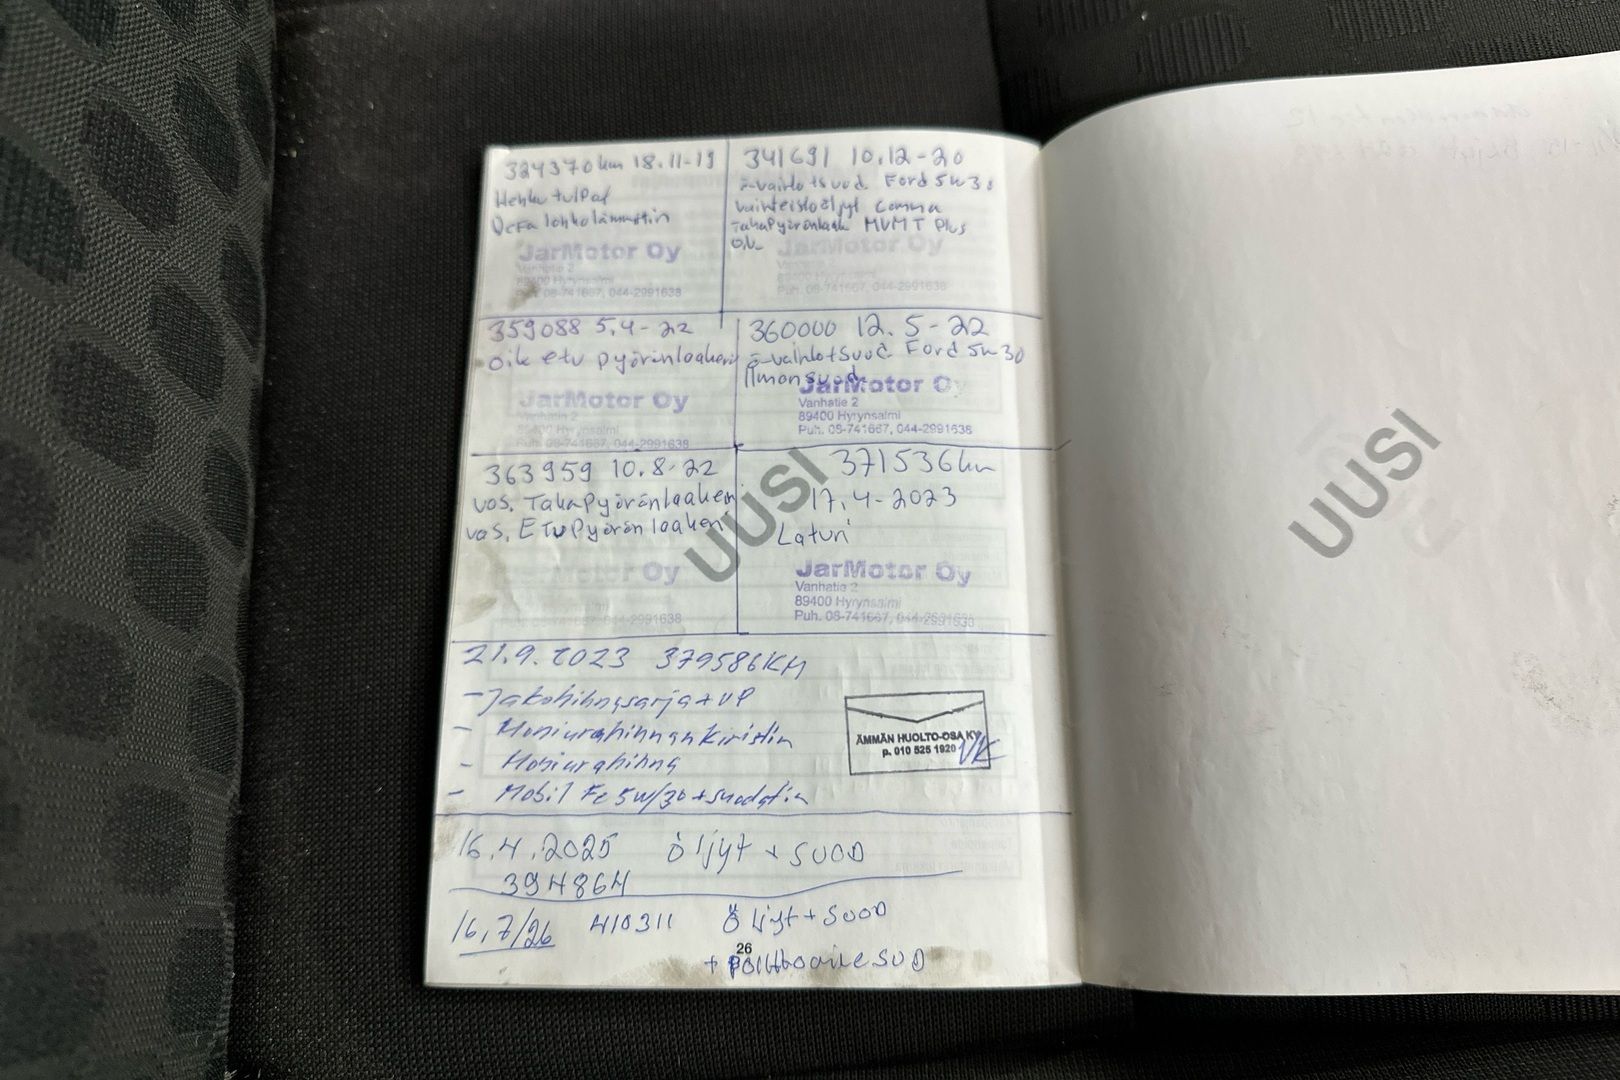 324370km 18.11-19
Hehku tulpat
Defa lohkolämmitin
JarMotor Oy
Vanhatie 2
89400 Hyrynsalmi
Puh. 08-741667, 044-2991638
341691 10.12-20
ö-vaihto+suod. Ford 5w30
Vaihteistoöljyt Comma
Takapyöränlaak MVMT Plus
JarMotor Oy
Puh. 08-741667, 044-2991638
359088 5.4-22
oik etu pyöränlaakeri
JarMotor Oy
Vanhatie 2
89400 Hyrynsalmi
Puh. 08-741667, 044-2991638
360000 12.5-22
ö-vaihto+suod. Ford 5w30
Ilmansuod
JarMotor Oy
Vanhatie 2
89400 Hyrynsalmi
Puh. 08-741667, 044-2991638
363959 10.8-22
vas. Takapyöränlaakeri
vas. Etupyöränlaakeri
044-2991638
371536km
17.4-2023
Laturi
JarMotor Oy
Vanhatie 2
89400 Hyrynsalmi
Puh. 08-741667, 044-2991638
UUSI
21.9.2023 379586KM
- Jakohihnasarja + VP
- Moniurahihnan kiristin
- Moniurahihna
- Mobil Fe 5w/30 + suodatin
ÄMMÄN HUOLTO-OSA KY
p. 010 525 1920
VK
16.4.2025 öljyt + SUOD
394864
16.7/26 410311 öljyt + SUOD
26
UUSI